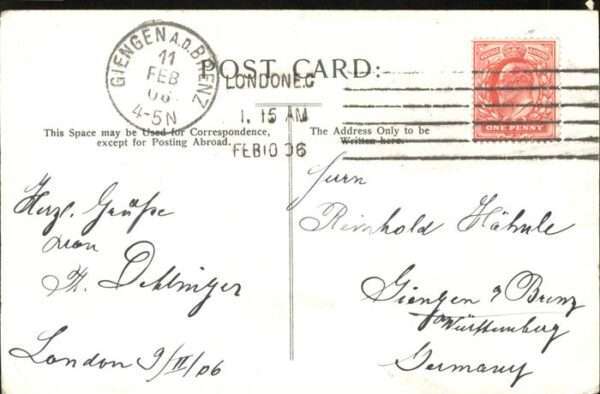 GIENGEN A.D. BRENZ
11
FEB
06
4-5N
POST CARD:
LONDON E.C
1. 15 AM
FEB 10 06
ONE PENNY
This Space may be Used for Correspondence,
except for Posting Abroad.
The Address Only to be
Written here.
Herzl. Grüße
von
Th. Dehlinger
London 9/II/06
Herrn
Reinhold Hähnle
Giengen a/Brenz
Württemberg
Germany